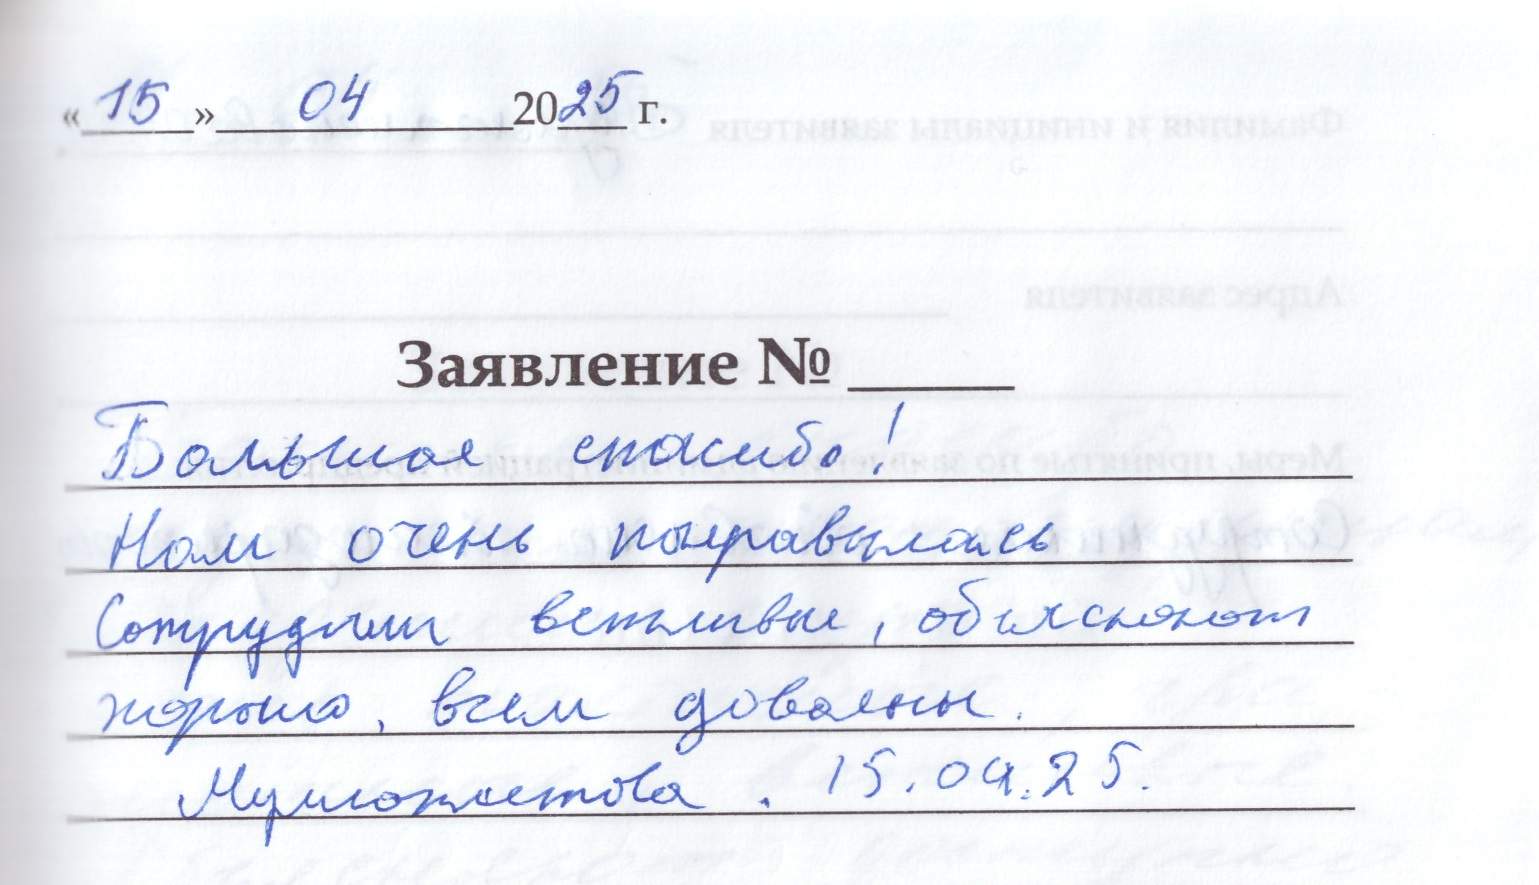 «15» 04 2025 г.
Заявление №
Большое спасибо!
Нам очень понравылась
Сотрудники вежливые, объясняют
хорошо, всем довольны.
15.04.25.